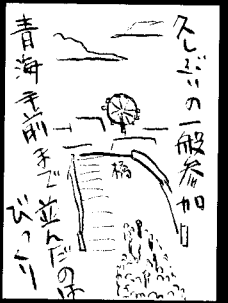 久しぶりの一般参加日
青海手前まで並んだのは
びっくり
橋